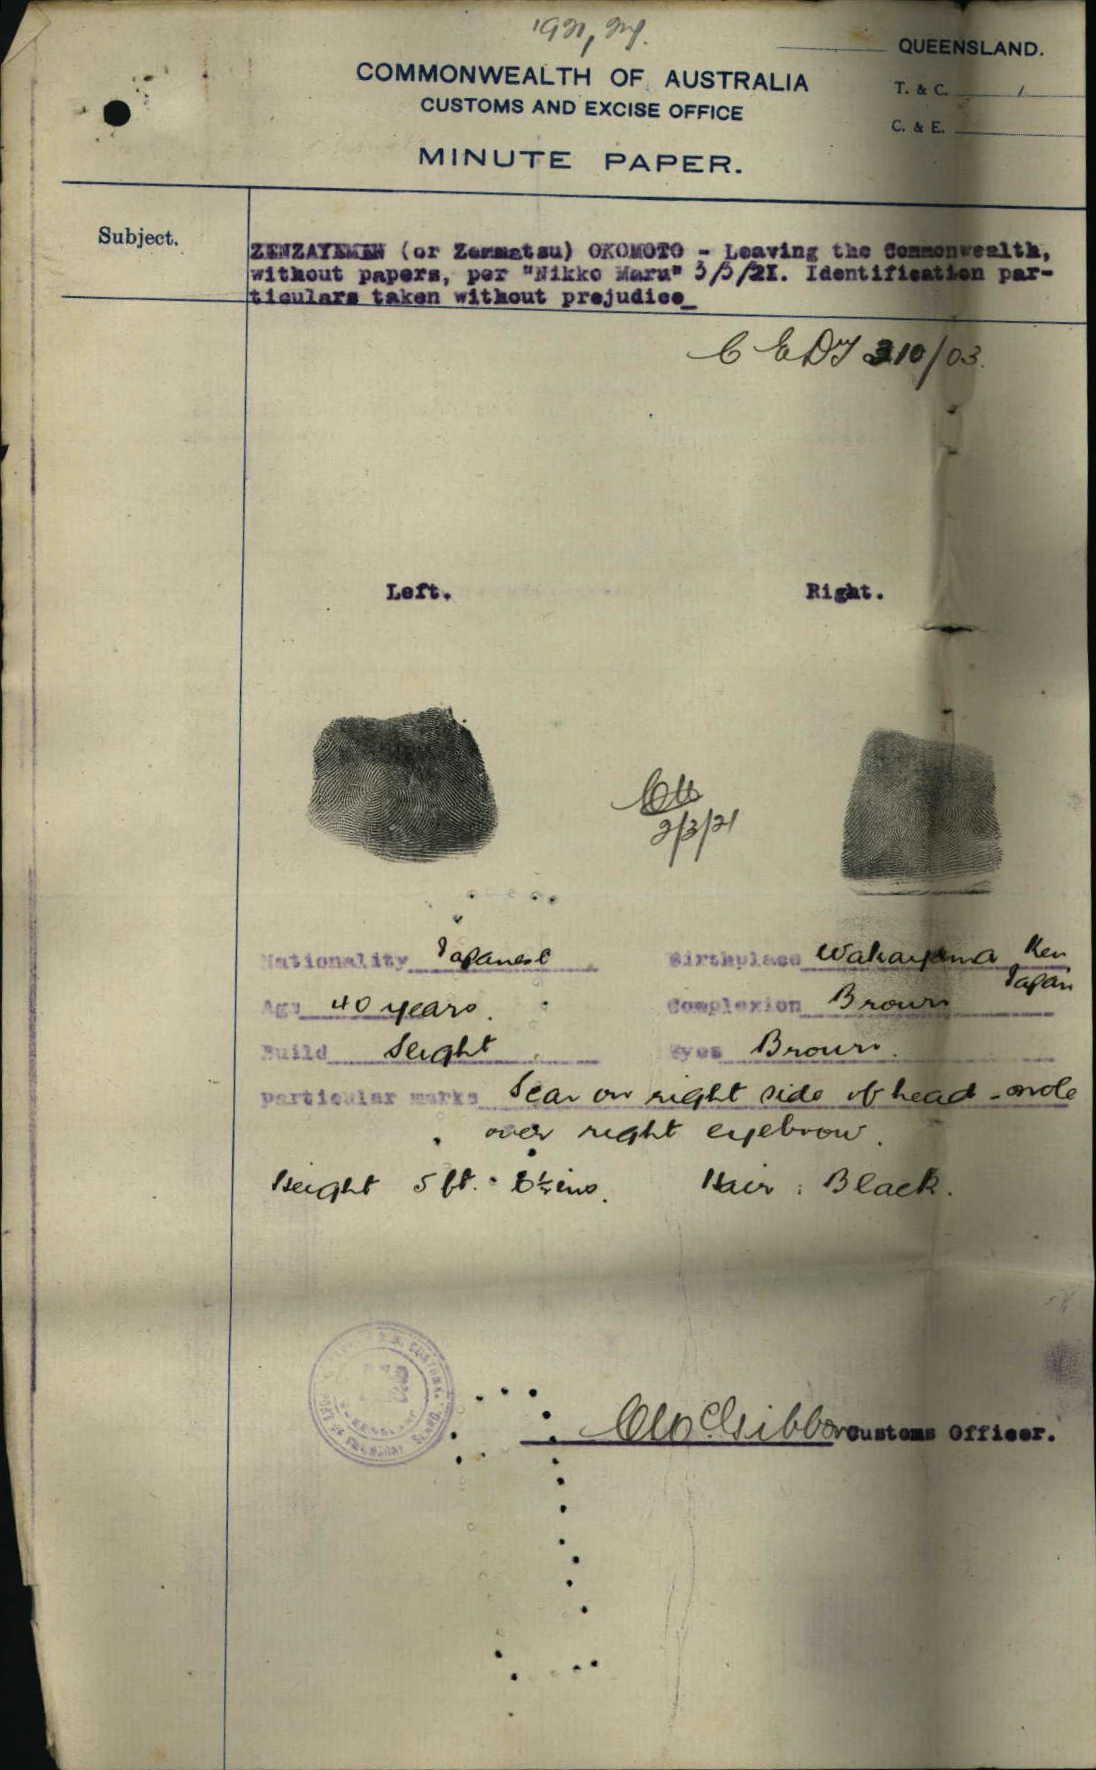 QUEENSLAND.
COMMONWEALTH OF AUSTRALIA
T. & C.
CUSTOMS AND EXCISE OFFICE
C. & E.
MINUTE PAPER.
Subject.
ZENZAYEMEN (or Zemmatsu) OKOMOTO - Leaving the Commonwealth,
without papers, per "Nikko Maru" 3/3/21. Identification par-
ticulars taken without prejudice_
C E D T 310/03.
Left. Right.
2/3/21
Nationality Japanese Birthplace Wakayama Ken
Japan
Age 40 years. Complexion Brown
Build Slight Eyes Brown.
particular marks Scar on right side of head - mole
over right eyebrow.
Height 5 ft. Hair : Black.
Customs Officer.